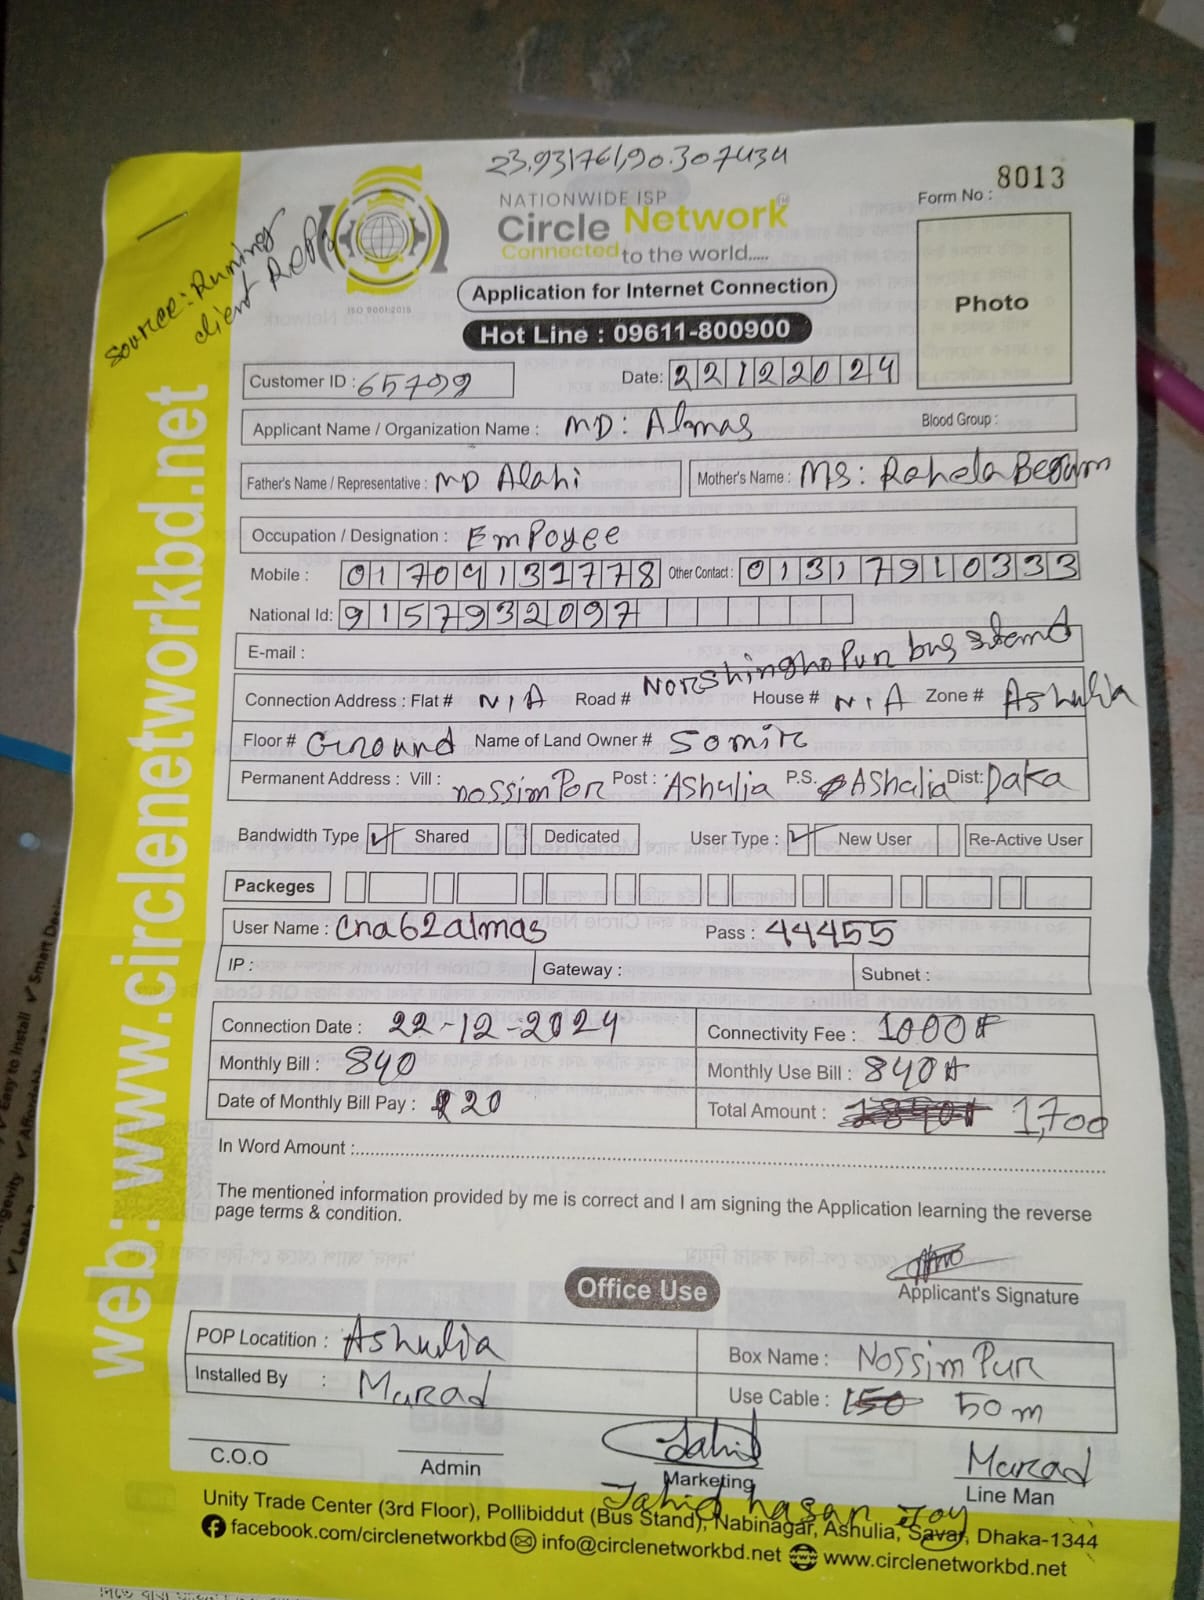 23.931761,90.307434
Source: Running
client Reff
NATIONWIDE ISP
Circle Network
Connected to the world.....
ISO 9001:2015
Form No : 8013
Photo
Application for Internet Connection
Hot Line : 09611-800900
Customer ID : 65799
Date: 22122024
Applicant Name / Organization Name : MD: Almas
Blood Group :
Father's Name / Representative : MD Alahi
Mother's Name : MS: Rahela Begum
Occupation / Designation : EmPoyee
Mobile : 01709131778
Other Contact : 01317910333
National Id: 9157932097
E-mail :
Connection Address : Flat # N/A Road # NorshinghoPur bus stand House # N/A Zone # Ashulia
Floor # Ground Name of Land Owner # Somir
Permanent Address : Vill : nossimPor Post : Ashulia P.S. AShalia Dist: Daka
Bandwidth Type ✓ Shared Dedicated User Type : ✓ New User Re-Active User
Packeges
User Name : cna62almas Pass : 44455
IP : Gateway : Subnet :
Connection Date : 22-12-2024
Connectivity Fee : 1000
Monthly Bill : 840
Monthly Use Bill : 840
Date of Monthly Bill Pay : 20
Total Amount : 1,700
In Word Amount :
The mentioned information provided by me is correct and I am signing the Application learning the reverse
page terms & condition.
Applicant's Signature
Office Use
POP Locatition : Ashulia
Box Name : NossimPur
Installed By : Marad
Use Cable : 150 50m
C.O.O
Admin
Jahid
Marketing
Jahid hasan Joy
Marad
Line Man
Unity Trade Center (3rd Floor), Pollibiddut (Bus Stand), Nabinagar, Ashulia, Savar, Dhaka-1344
facebook.com/circlenetworkbd info@circlenetworkbd.net www.circlenetworkbd.net
web: www.circlenetworkbd.net
✓ Easy to Install ✓ Smart Desi